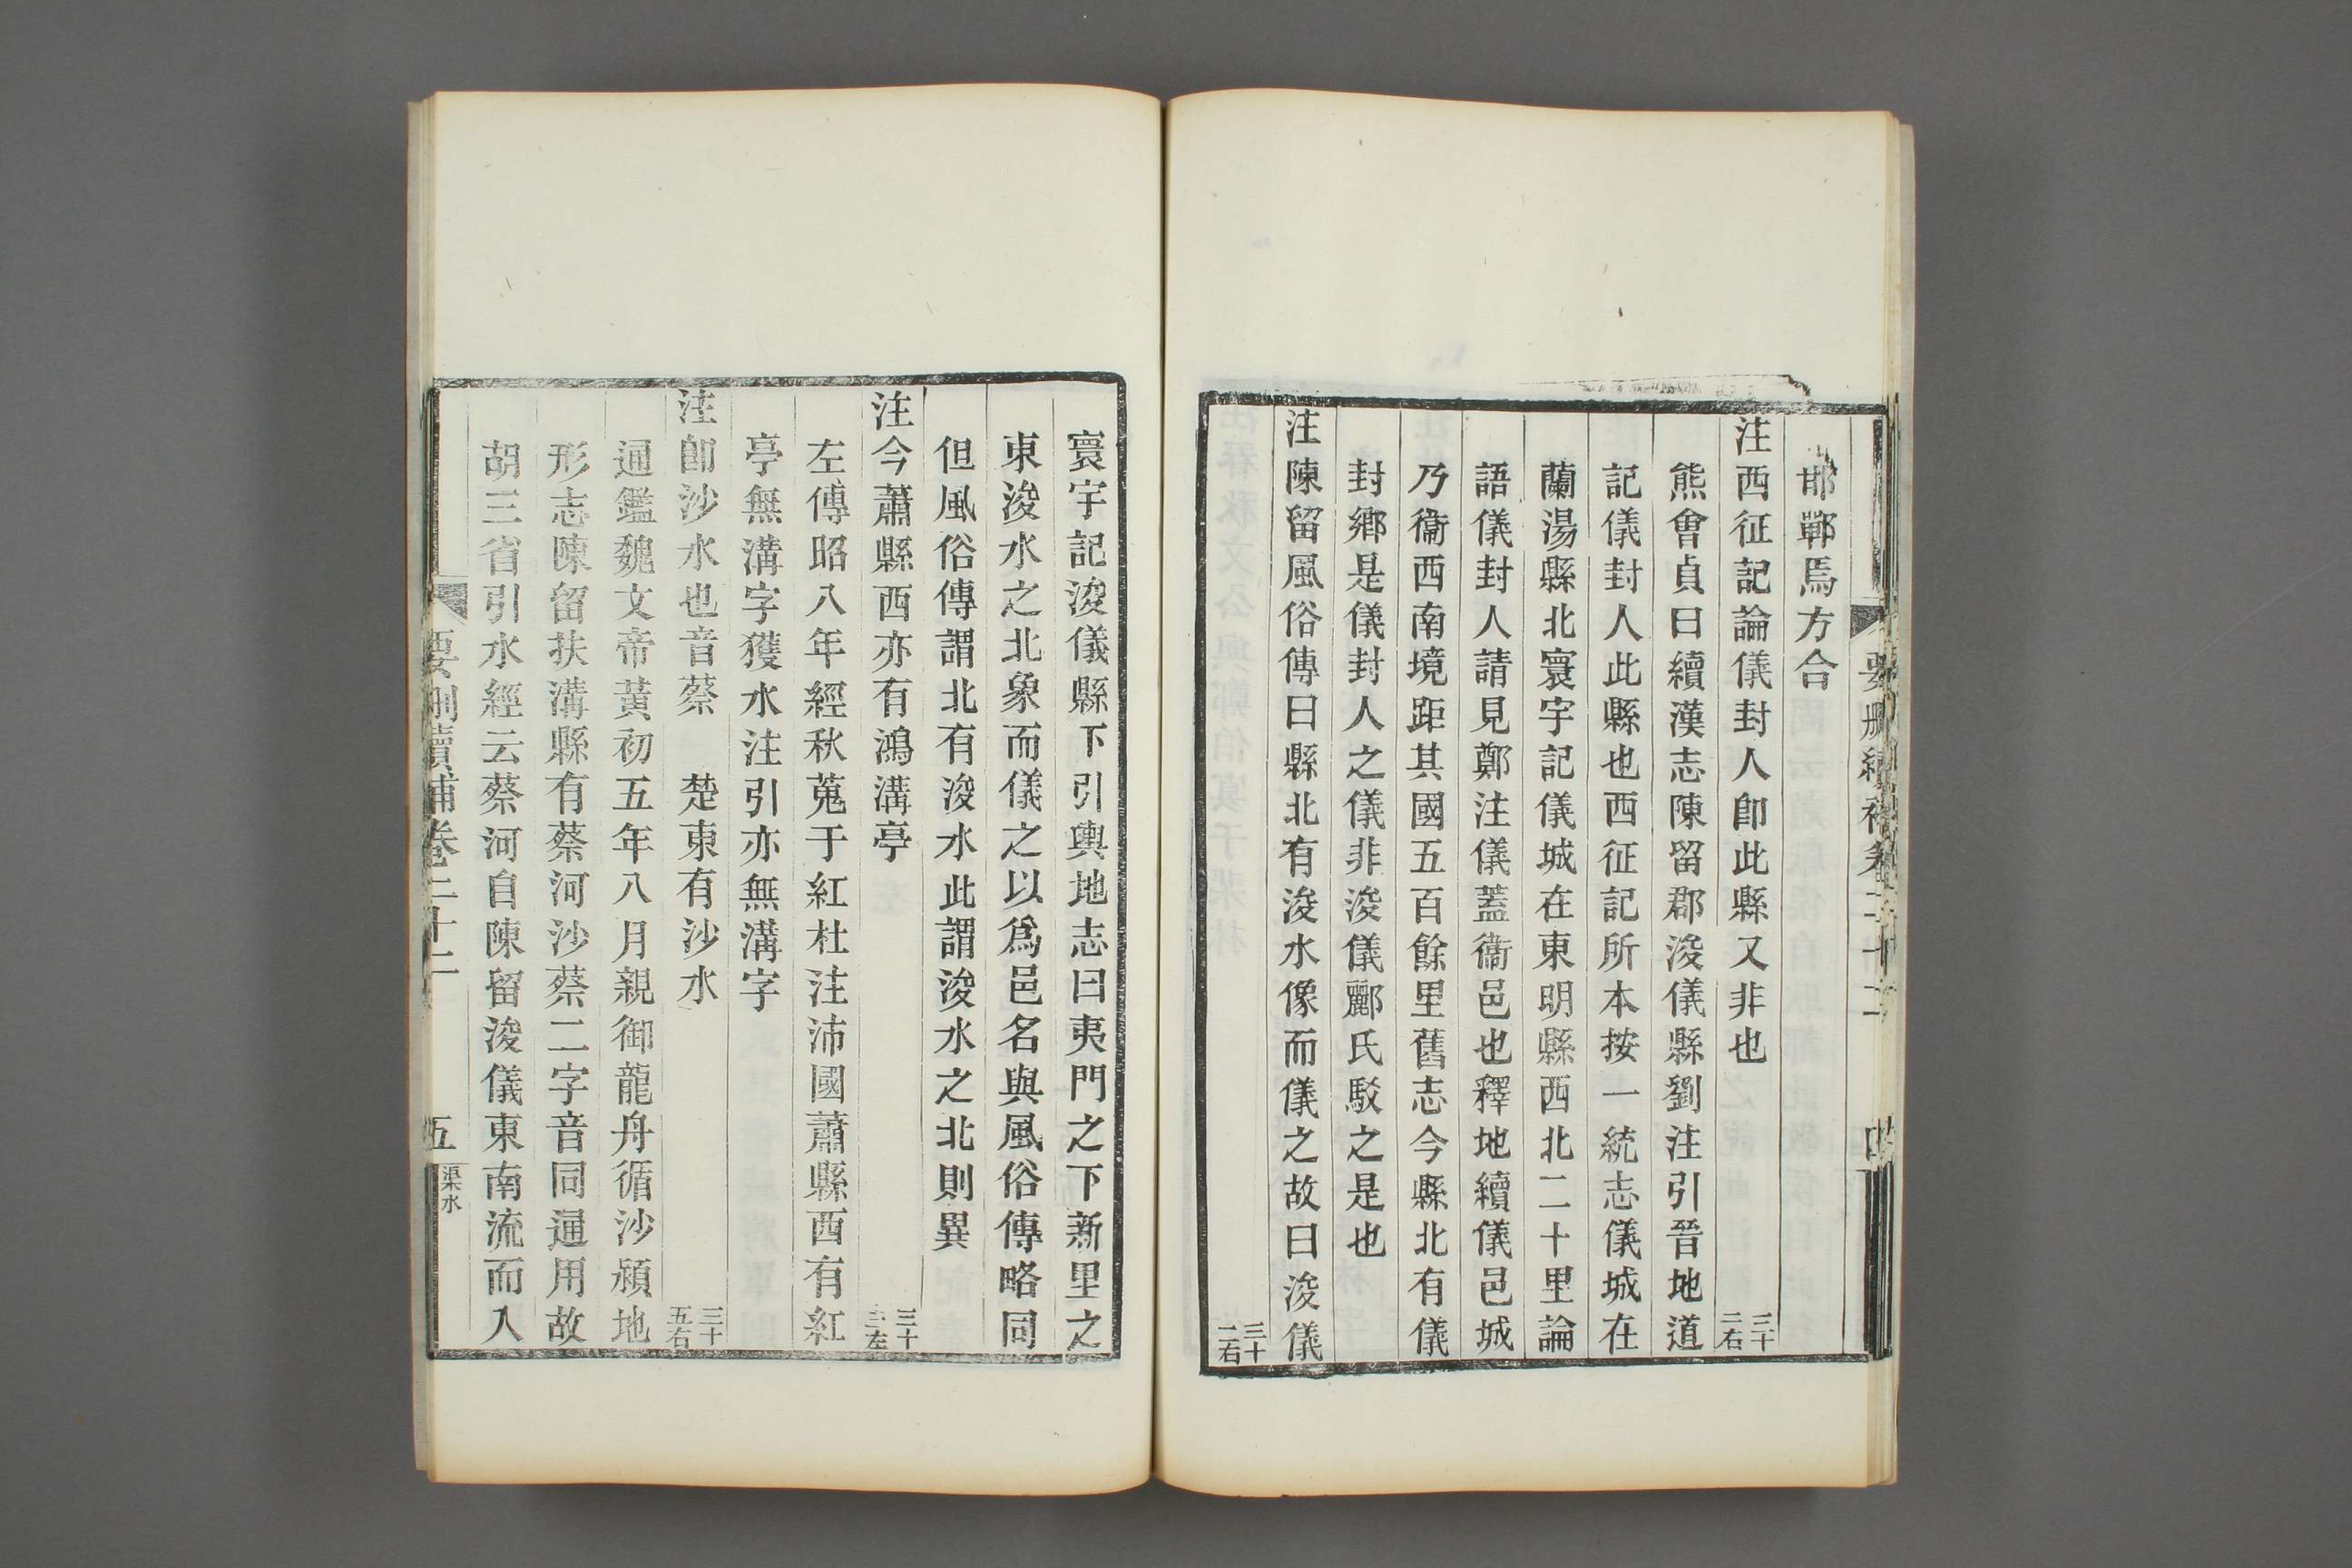 邯鄲焉方合
注西征記論儀封人卽此縣又非也 三十二右
熊會貞曰續漢志陳留郡浚儀縣劉注引晉地道
記儀封人此縣也西征記所本按一統志儀城在
蘭湯縣北寰宇記儀城在東明縣西北二十里論
語儀封人請見鄭注儀蓋衞邑也釋地續儀邑城
乃衞西南境距其國五百餘里舊志今縣北有儀
封鄉是儀封人之儀非浚儀酈氏駁之是也
注陳留風俗傳曰縣北有浚水像而儀之故曰浚儀
三十二右
寰宇記浚儀縣下引輿地志曰夷門之下新里之
東浚水之北象而儀之以爲邑名與風俗傳略同
但風俗傳謂北有浚水此謂浚水之北則異
注今蕭縣西亦有鴻溝亭 三十三左
左傳昭八年經秋蒐于紅杜注沛國蕭縣西有紅
亭無溝字獲水注引亦無溝字
注卽沙水也音蔡 楚東有沙水 三十五右
通鑑魏文帝黃初五年八月親御龍舟循沙潁地
形志陳留扶溝縣有蔡河沙蔡二字音同通用故
胡三省引水經云蔡河自陳留浚儀東南流而入
要刪續補卷二十二 五 渠水